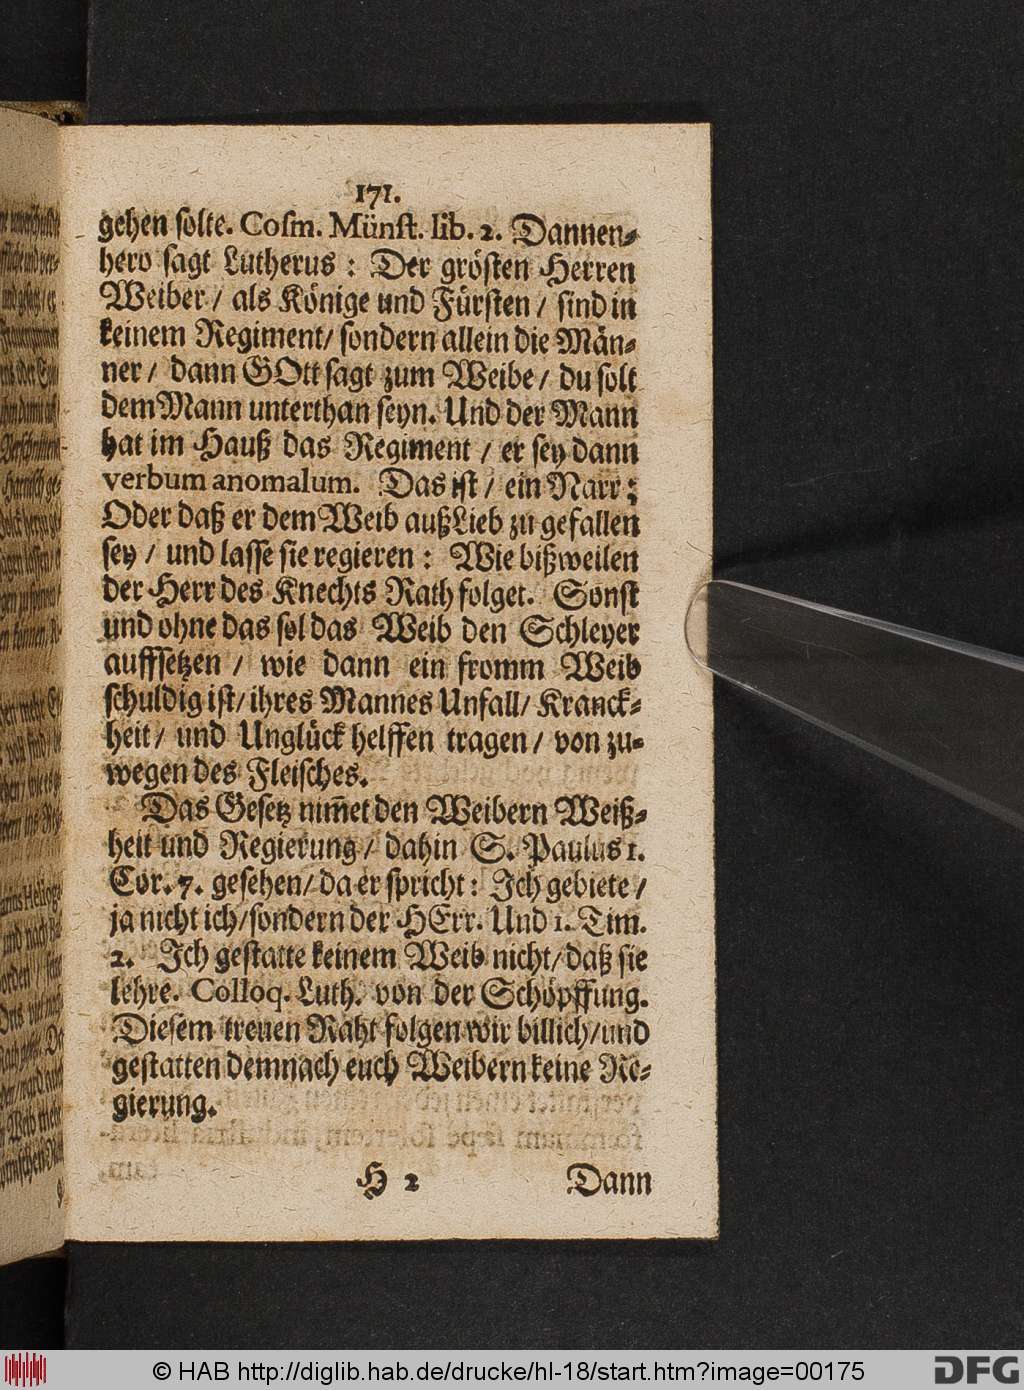 171.
gehen solte. Cosm. Münst. lib. 2. Dannen-
hero sagt Lutherus: Der grösten Herren
Weiber / als Könige und Fürsten / sind in
keinem Regiment / sondern allein die Män-
ner / dann GOtt sagt zum Weibe / du solt
dem Mann unterthan seyn. Und der Mann
hat im Hauß das Regiment / er sey dann
verbum anomalum. Das ist / ein Narr:
Oder daß er dem Weib auß Lieb zu gefallen
sey / und lasse sie regieren: Wie bißweilen
der Herr des Knechts Rath folget. Sonst
und ohne das sol das Weib den Schleyer
auffsetzen / wie dann ein fromm Weib
schuldig ist / ihres Mannes Unfall / Kranck-
heit / und Unglück helffen tragen / von zu-
wegen des Fleisches.
Das Gesetz nim̃et den Weibern Weiß-
heit und Regierung / dahin S. Paulus 1.
Cor. 7. gesehen / da er spricht: Ich gebiete /
ja nicht ich / sondern der HErr. Und 1. Tim.
2. Ich gestatte keinem Weib nicht / daß sie
lehre. Colloq. Luth. von der Schöpffung.
Diesem treuen Raht folgen wir billich / und
gestatten demnach euch Weibern keine Re-
gierung.
H 2 Dann
© HAB http://diglib.hab.de/drucke/hl-18/start.htm?image=00175
DFG